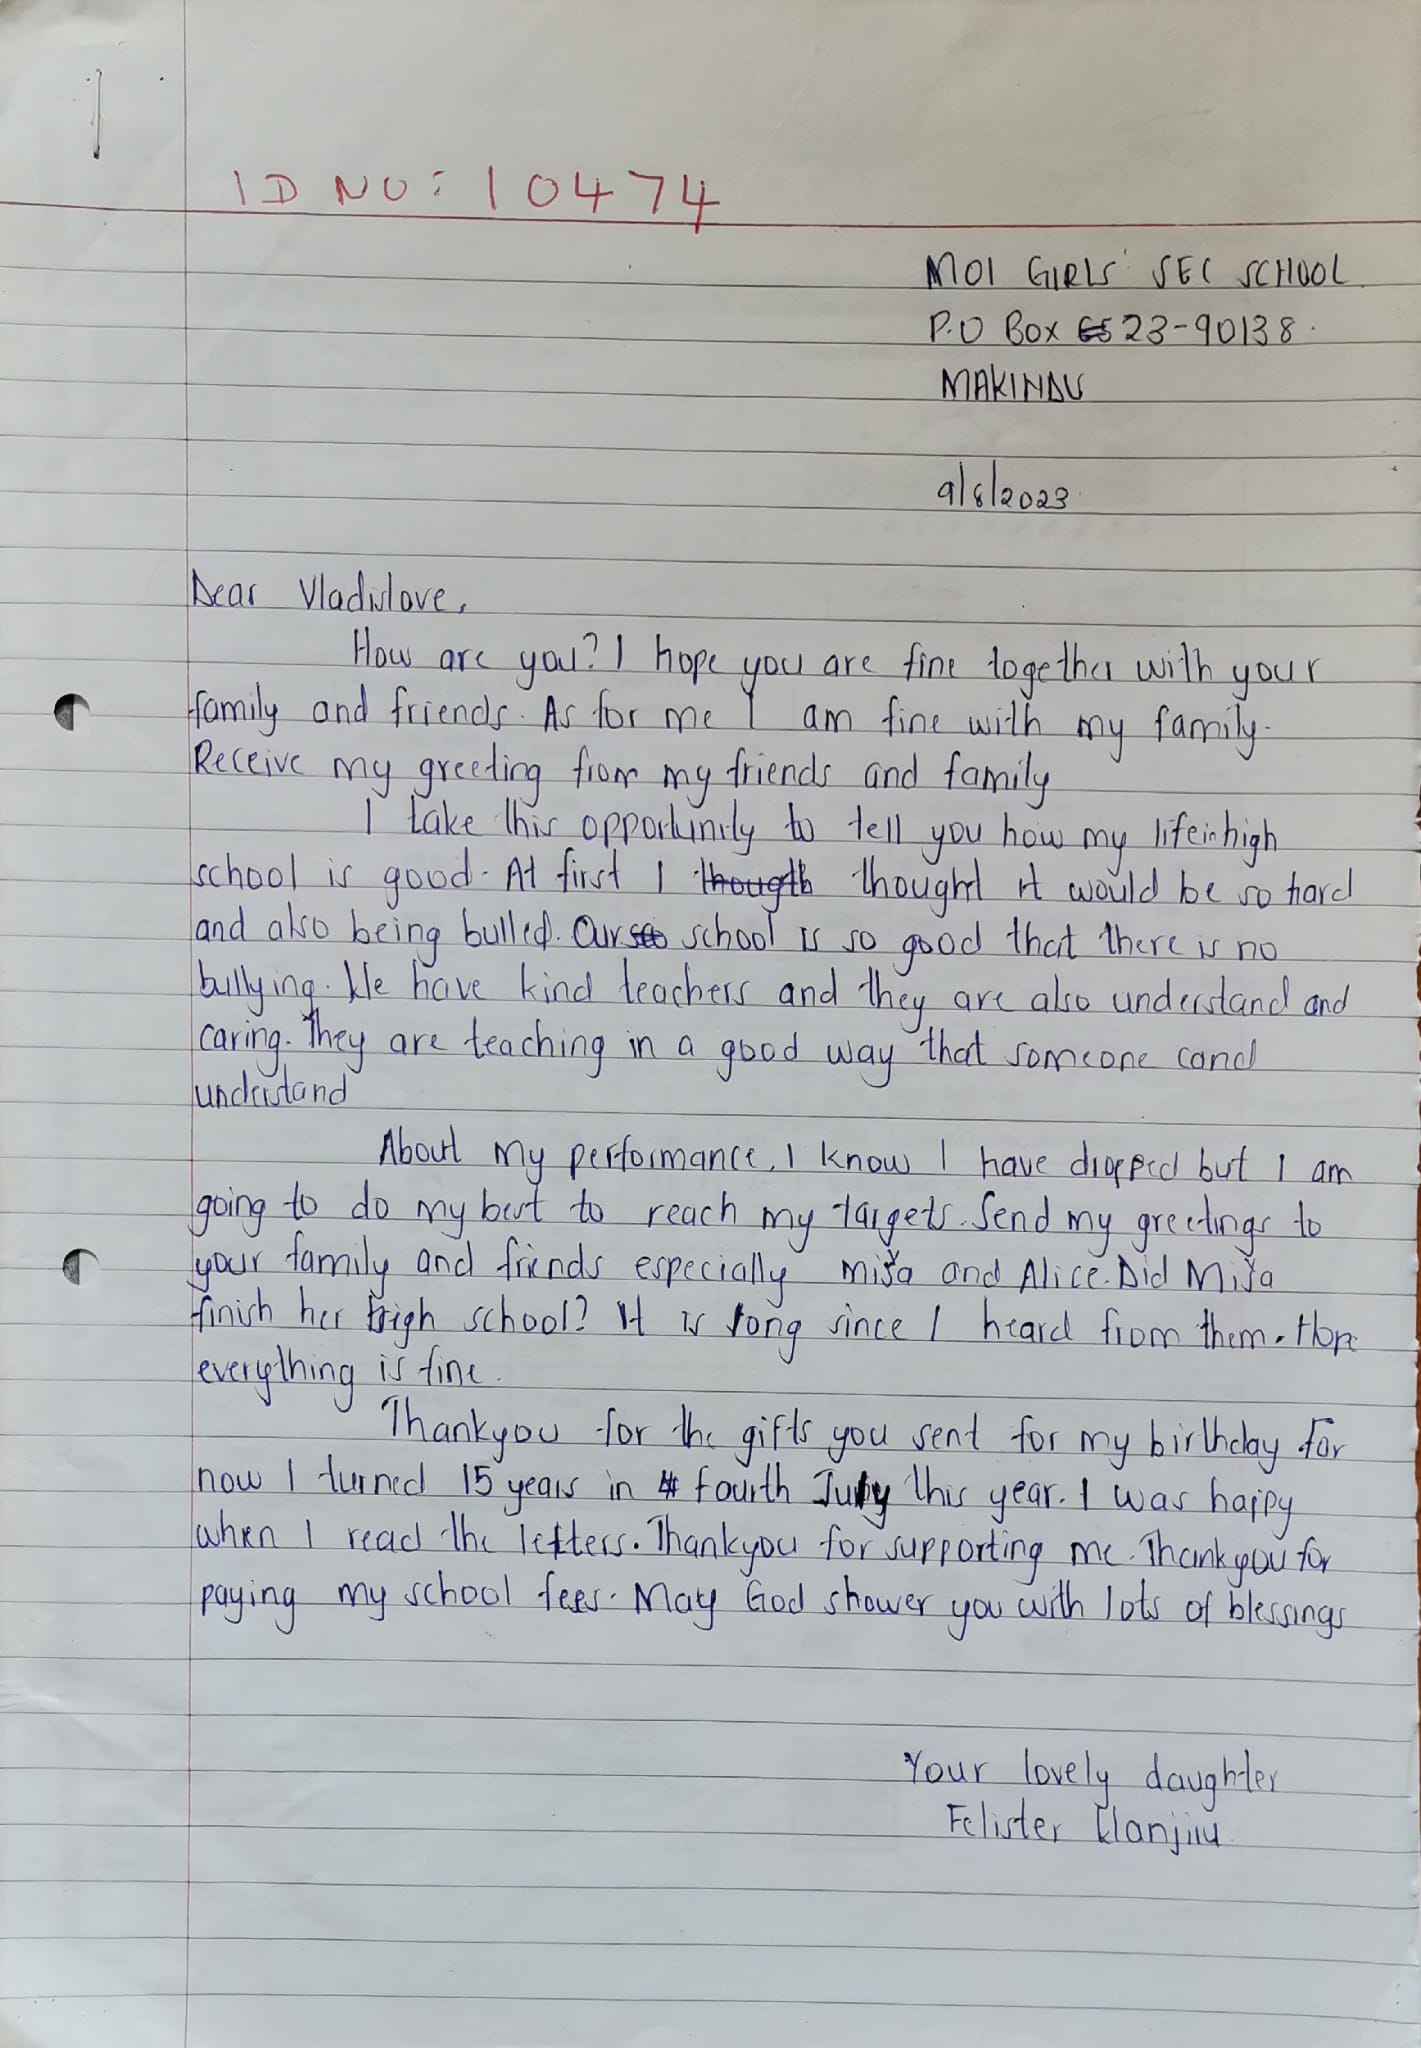 ID NO: 10474
MOI GIRLS' SEC SCHOOL
P.O Box 23-90138.
MAKINDU
9/8/2023
Dear Vladislove,
How are you? I hope you are fine together with your
family and friends. As for me I am fine with my family.
Receive my greeting from my friends and family
I take this opportunity to tell you how my life in high
school is good. At first I thougth thought it would be so hard
and also being bullied. Our school is so good that there is no
bullying. We have kind teachers and they are also understand and
caring. They are teaching in a good way that someone cand
understand
About my performance, I know I have dropped but I am
going to do my best to reach my targets. Send my greetings to
your family and friends especially Miša and Alice. Did Miša
finish her high school? It is long since I heard from them. Hope
everything is fine.
Thankyou for the gifts you sent for my birthday for
now I turned 15 years in fourth July this year. I was happy
when I read the letters. Thankyou for supporting me. Thankyou for
paying my school fees. May God shower you with lots of blessings
Your lovely daughter
Felister Wanjiru.